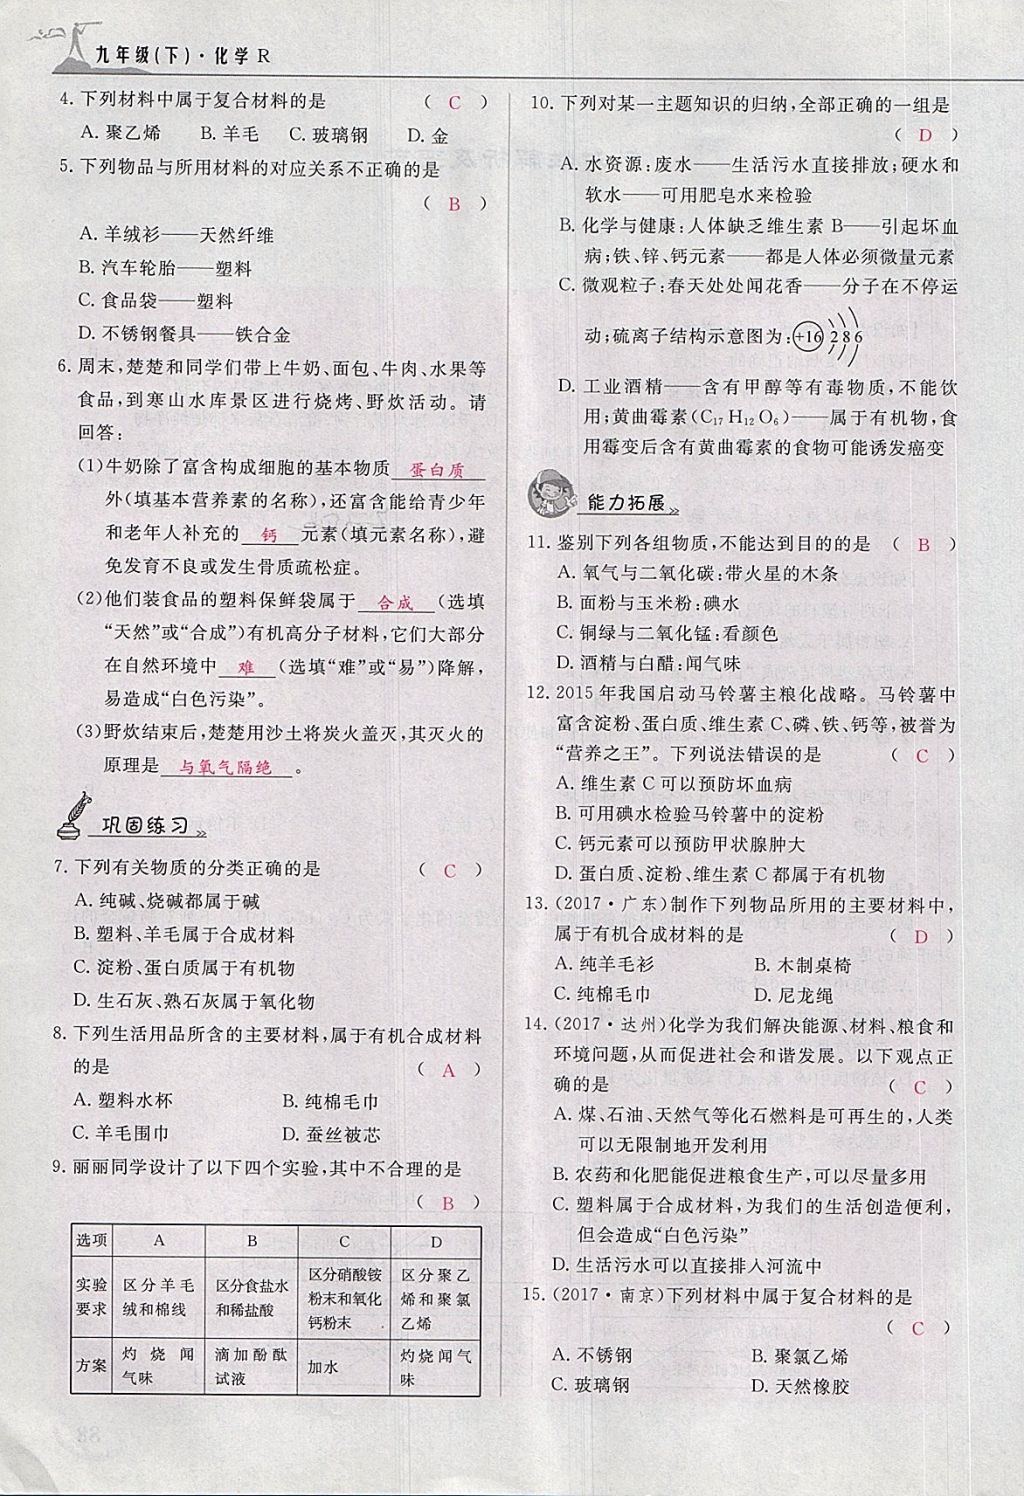 九年级(下)·化学 R
4. 下列材料中属于复合材料的是 ( C )
A. 聚乙烯 B. 羊毛 C. 玻璃钢 D. 金
5. 下列物品与所用材料的对应关系不正确的是
( B )
A. 羊绒衫——天然纤维
B. 汽车轮胎——塑料
C. 食品袋——塑料
D. 不锈钢餐具——铁合金
6. 周末,楚楚和同学们带上牛奶、面包、牛肉、水果等
食品,到寒山水库景区进行烧烤、野炊活动。请
回答:
(1)牛奶除了富含构成细胞的基本物质 蛋白质
外(填基本营养素的名称),还富含能给青少年
和老年人补充的 钙 元素(填元素名称),避
免发育不良或发生骨质疏松症。
(2)他们装食品的塑料保鲜袋属于 合成 (选填
“天然”或“合成”)有机高分子材料,它们大部分
在自然环境中 难 (选填“难”或“易”)降解,
易造成“白色污染”。
(3)野炊结束后,楚楚用沙土将炭火盖灭,其灭火的
原理是 与氧气隔绝 。
巩固练习
7. 下列有关物质的分类正确的是 ( C )
A. 纯碱、烧碱都属于碱
B. 塑料、羊毛属于合成材料
C. 淀粉、蛋白质属于有机物
D. 生石灰、熟石灰属于氧化物
8. 下列生活用品所含的主要材料,属于有机合成材料
的是 ( A )
A. 塑料水杯 B. 纯棉毛巾
C. 羊毛围巾 D. 蚕丝被芯
9. 丽丽同学设计了以下四个实验,其中不合理的是
( B )
选项 A B C D
实验要求 区分羊毛绒和棉线 区分食盐水和稀盐酸 区分硝酸铵粉末和氧化钙粉末 区分聚乙烯和聚氯乙烯
方案 灼烧闻气味 滴加酚酞试液 加水 灼烧闻气味
10. 下列对某一主题知识的归纳,全部正确的一组是
( D )
A. 水资源:废水——生活污水直接排放;硬水和
软水——可用肥皂水来检验
B. 化学与健康:人体缺乏维生素 B——引起坏血
病;铁、锌、钙元素——都是人体必须微量元素
C. 微观粒子:春天处处闻花香——分子在不停运
动;硫离子结构示意图为: +16 2 8 6
D. 工业酒精——含有甲醇等有毒物质,不能饮
用;黄曲霉素(C₁₇H₁₂O₆)——属于有机物,食
用霉变后含有黄曲霉素的食物可能诱发癌变
能力拓展
11. 鉴别下列各组物质,不能达到目的的是 ( B )
A. 氧气与二氧化碳:带火星的木条
B. 面粉与玉米粉:碘水
C. 铜绿与二氧化锰:看颜色
D. 酒精与白醋:闻气味
12. 2015年我国启动马铃薯主粮化战略。马铃薯中
富含淀粉、蛋白质、维生素 C、磷、铁、钙等,被誉为
“营养之王”。下列说法错误的是 ( C )
A. 维生素 C 可以预防坏血病
B. 可用碘水检验马铃薯中的淀粉
C. 钙元素可以预防甲状腺肿大
D. 蛋白质、淀粉、维生素 C 都属于有机物
13. (2017·广东)制作下列物品所用的主要材料中,
属于有机合成材料的是 ( D )
A. 纯羊毛衫 B. 木制桌椅
C. 纯棉毛巾 D. 尼龙绳
14. (2017·达州)化学为我们解决能源、材料、粮食和
环境问题,从而促进社会和谐发展。以下观点正
确的是 ( C )
A. 煤、石油、天然气等化石燃料是可再生的,人类
可以无限制地开发利用
B. 农药和化肥能促进粮食生产,可以尽量多用
C. 塑料属于合成材料,为我们的生活创造便利,
但会造成“白色污染”
D. 生活污水可以直接排入河流中
15. (2017·南京)下列材料中属于复合材料的是
( C )
A. 不锈钢 B. 聚氯乙烯
C. 玻璃钢 D. 天然橡胶